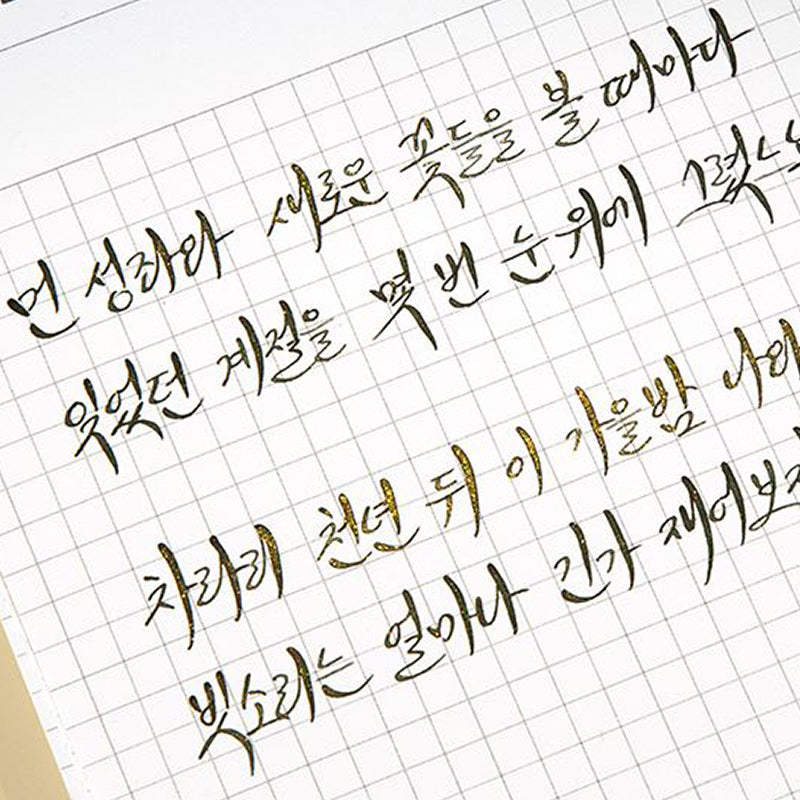 먼 성좌와 새로운 꽃들을 볼 때마다
잊었던 계절을 몇 번 눈 위에 그렸느
차라리 천년 뒤 이 가을밤 나와
빗소리는 얼마나 긴가 재어보자